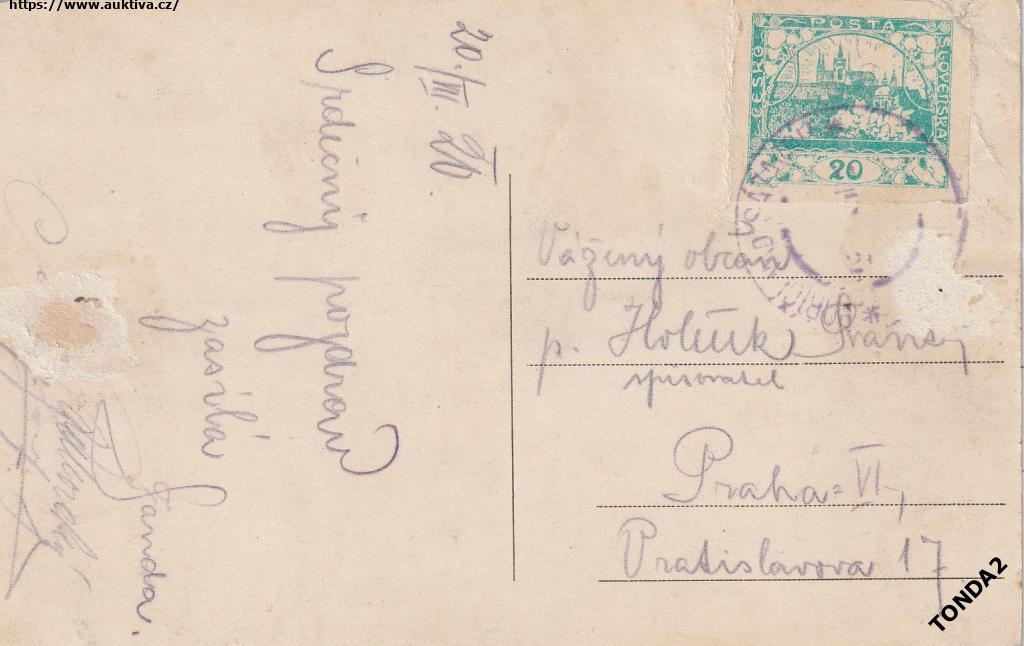 https://www.auktiva.cz/
20./III. 20
Srdečný pozdrav
zasílá
Fanda.
POŠTA
ČESKO
SLOVENSKÁ
20
Vážený občan
p. Holük
spisovatel
Praha-VI,
Vratislavova 17
TONDA2